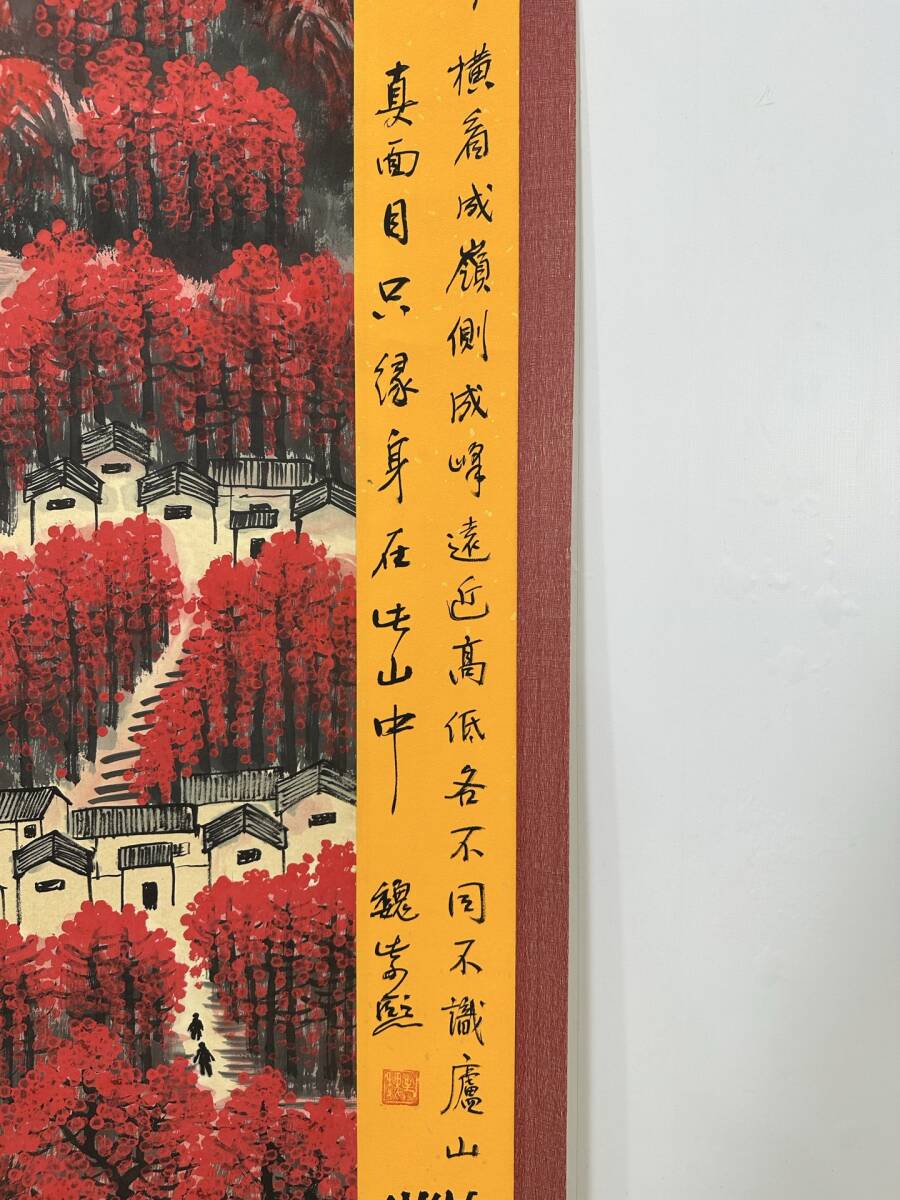 橫看成嶺側成峰遠近高低各不同不識廬山
真面目只緣身在此山中 魏紫熙